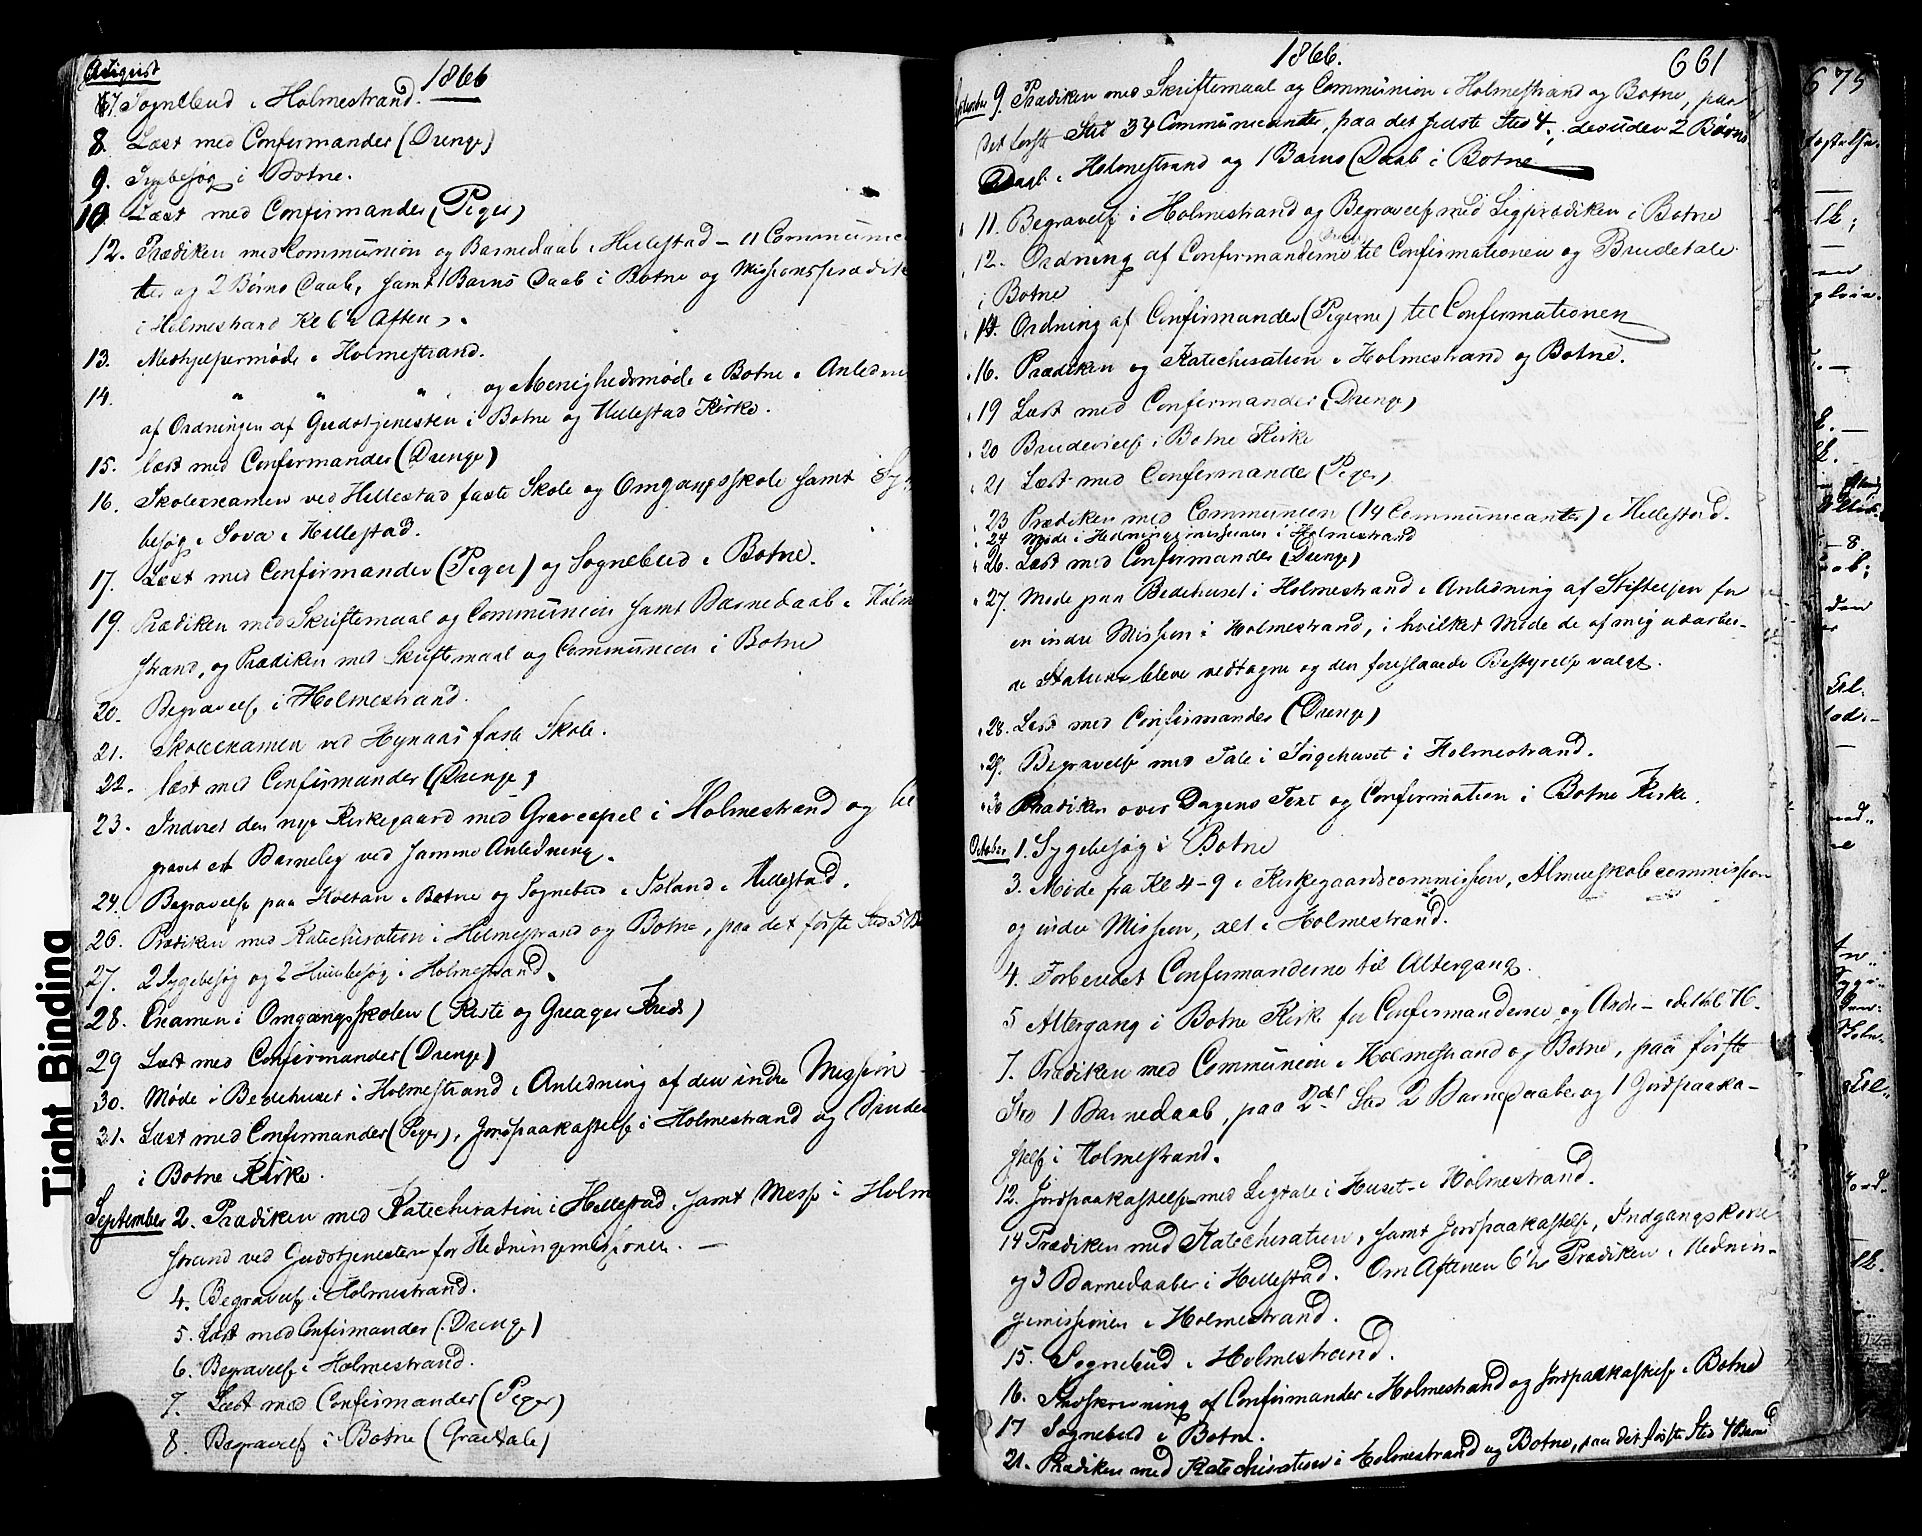 August
1866
7. Sognebud i Holmestrand.
8. Læst med Confirmander (Drenge)
9. Sygebesøg i Botne.
10 Læst med Confirmander (Piger)
12. Prædiken med Communion og Barnedaab i Hillestad – 11 Communic
ter og 2 Børns Daab, samt 1 Barns Daab i Botne og Missionsprædik
i Holmestrand Kl 6½ Aften.
13. Medhjelpermøde i Holmestrand.
14. " " " og Menighedsmøde i Botne i Anledn
af Ordningen af Gudstjenesten i Botne og Hillestad Kirke.
15. læst med Confirmander (Drenge)
16. Skoleexamen ved Hillestad faste Skole og Omgangsskole samt Sy
besøg i Sova i Hillestad.
17. Læst med Confirmander (Piger) og Sognebud i Botne.
19. Prædiken med Skriftemaal og Communion samt Barnedaab i Holm
strand, og Prædiken med Skriftemaal og Communion i Botne
20. Begravelse i Holmestrand.
21. Skoleexamen ved Hynaas faste Skole.
22. læst med Confirmander (Drenge)
23. Indviet den nye Kirkegaard med Gravcapel i Holmestrand og be
gravet et Barnelig ved samme Anledning.
24. Begravelse paa Holtan i Botne og Sognebud i Island i Hillestad.
26. Prædiken med Katechisation i Holmestrand og Botne, paa det første Sted 5 B
27. 2 Sygebesøg og 2 Huusbesøg i Holmestrand.
28. Examen i Omgangsskolen ( og Kreds)
29 Læst med Confirmander (Drenge)
30. Møde i Bedehuset i Holmestrand i Anledning af den indre Mission
31. Læst med Confirmander (Piger), Jordpaakastelse i Holmestrand og Brude
i Botne Kirke.
September 2. Prædiken med Katechisation i Hillestad, samt Messe i Holm
strand ved Gudstjenesten for Hedningemissionen. —
4. Begravelse i Holmestrand.
5. Læst med Confirmander (Drenge)
6. Begravelse i Holmestrand.
7. Læst med Confirmander (Piger)
8. Begravelse i Botne (Gravtale)
1866.
661
September 9. Prædiken med Skriftemaal og Communion i Holmestrand og Botne, paa
det første Sted 34 Communicanter, paa det sidste Sted 4, desuden 2 Børns
Daab i Holmestrand og 1 Barns Daab i Botne
11. Begravelse i Holmestrand og Begravelse med Ligprædiken i Botne
12. Ordning af Confirmanderne til Confirmationen og Brudetale
i Botne
14. Ordning af Confirmander (Pigerne) til Confirmationen
16. Prædiken og Katechisation i Holmestrand og Botne.
19 Læst med Confirmander (Drenge)
20 Brudevielse i Botne Kirke
21 Læst med Confirmander (Piger)
23 Prædiken med Communion (14 Communicanter) i Hillestad.
24 Møde i Hedningemissionen i Holmestrand
26. Læst med Confirmander (Drenge)
27. Møde paa Bedehuset i Holmestrand i Anledning af Stiftelsen for
en indre Mission i Holmestrand, i hvilket Møde de af mig udarbei-
de Statuter bleve vedtagne og den foreslaaede Bestyrelse valgt.
28. Læst med Confirmander (Drenge)
29. Begravelse med Tale i Sørgehuset i Holmestrand.
30 Prædiken over Dagens Text og Confirmation i Botne Kirke.
October 1. Sygebesøg i Botne
3. Møde fra Kl 4–9 i Kirkegaardscommission, Almueskolecommission
og indre Mission, alt i Holmestrand.
4. Forberedt Confirmanderne til Altergang.
5 Altergang i Botne Kirke for Confirmanderne og Andre – 76.
7. Prædiken med Communion i Holmestrand og Botne, paa første
Sted 1 Barnedaab, paa 2det Sted 2 Barnedaaber og 1 Jordpaaka-
stelse i Holmestrand.
12. Jordpaakastelse med Ligtale i Huset i Holmestrand.
14 Prædiken med Katechisation, samt Jordpaakastelse, Indgangskone
og 3 Barnedaaber i Hillestad. Om Aftenen 6½ Prædiken i Hednin-
gemissionen i Holmestrand.
15. Sognebud i Holmestrand.
16. Indskrivning af Confirmander i Holmestrand og Jordpaakastelse i Botne
17 Sognebud i Botne.
21. Prædiken med Katechisation i Holmestrand og Botne, paa det første Sted 4 Barne
675
Tight Binding